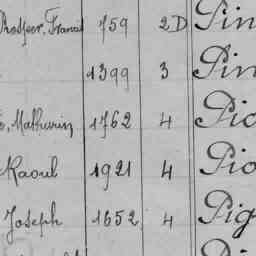 Prosper, Francis 759 2D Pin
1399 3 Pin
Mathurin 1762 4 Pio
Raoul 1921 4 Pio
Joseph 1652 4 Pig